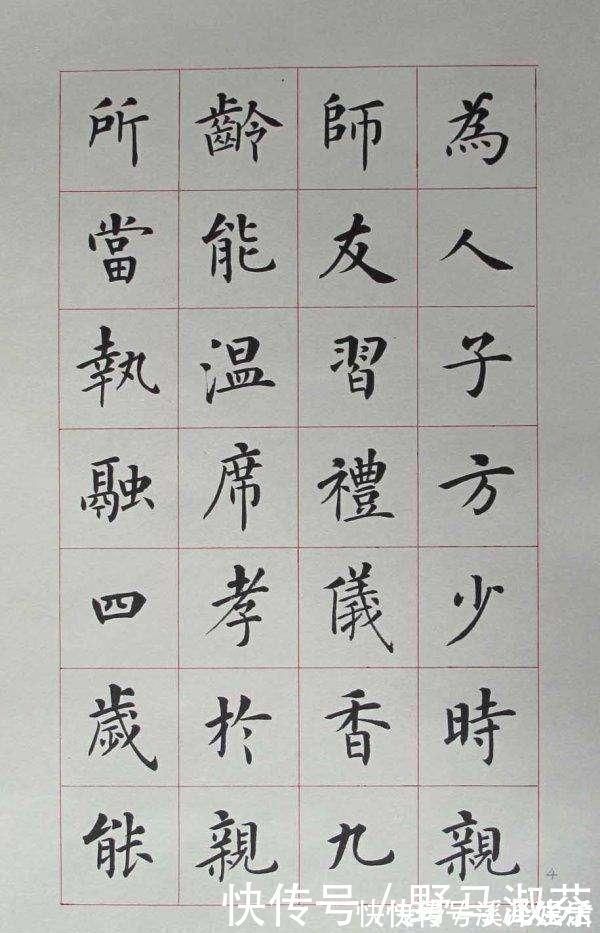 為人子方少時親
師友習禮儀香九
齡能温席孝於親
所當執融四歲能
4
快传号